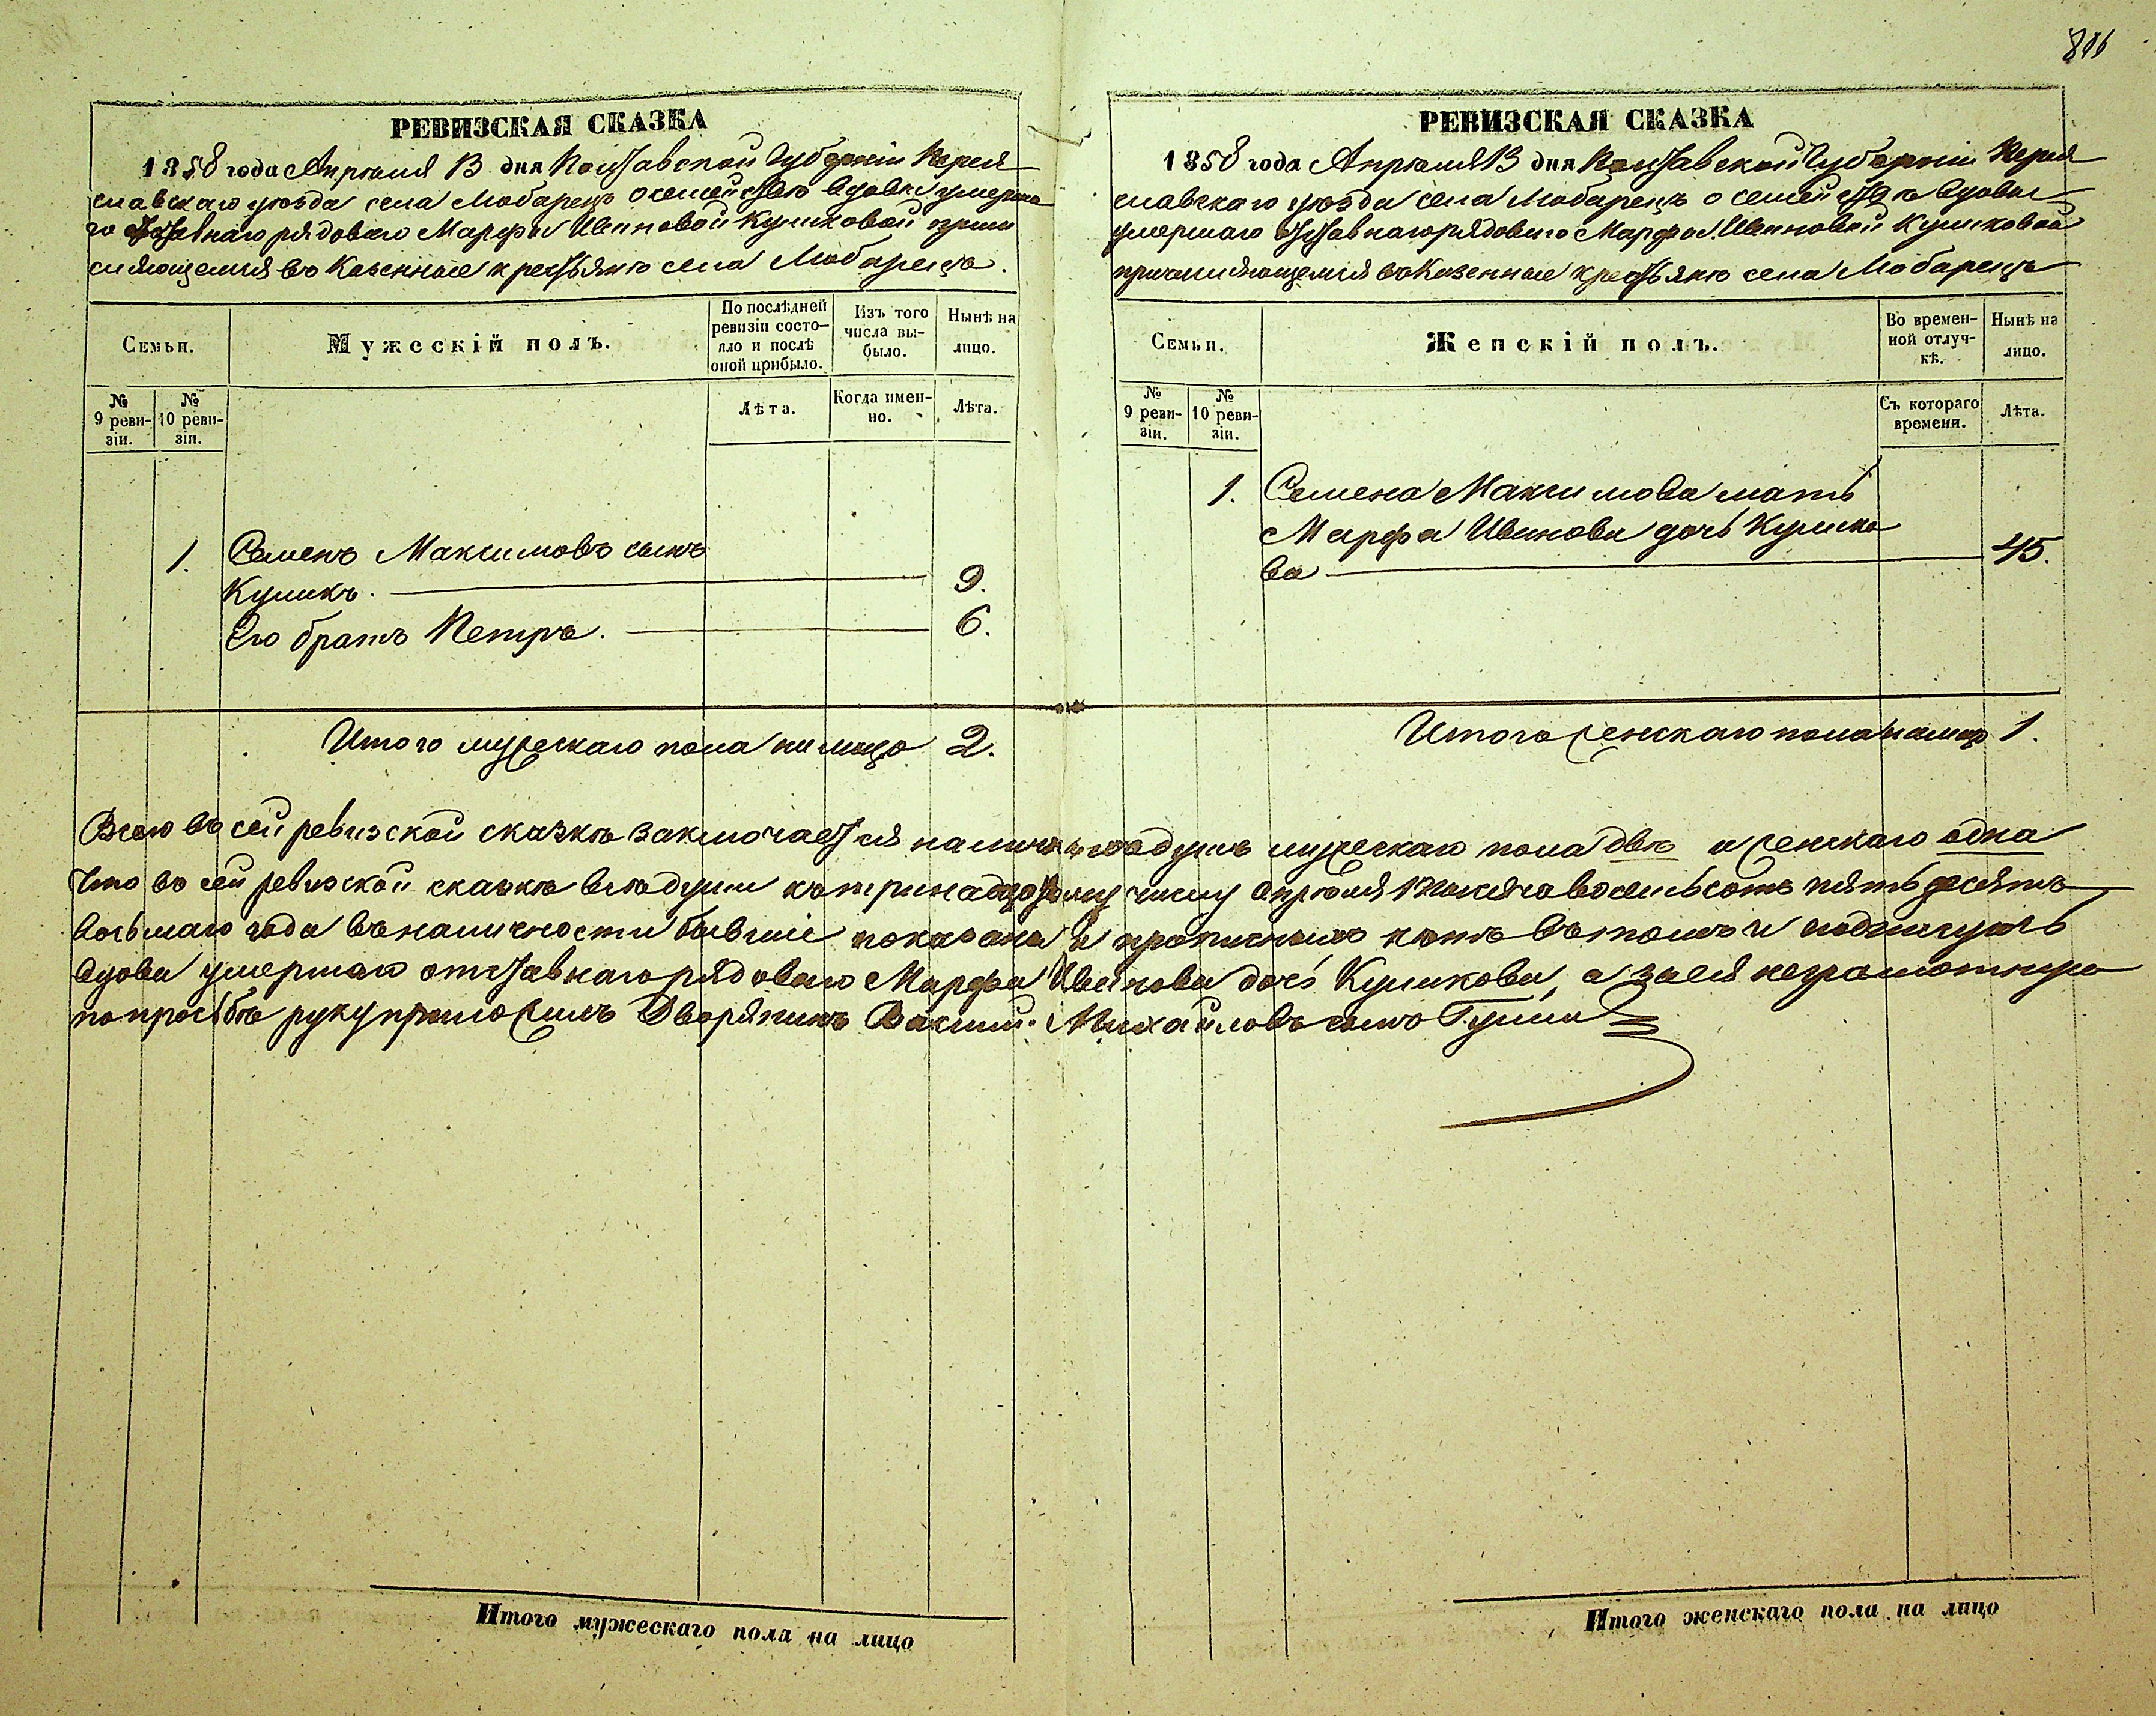 РЕВИЗСКАЯ СКАЗКА
1858 года Апрѣля 13 дня Полтавской Губерніи Перея
славскаго уѣзда села Любарецъ о семействѣ вдовы умерша
го отставнаго рядоваго Марфы Ивановой Куликовой причи
сляющемся въ Казенные крестьяне села Любарецъ.
Семьи.
Мужескій полъ.
По послѣдней ревизіи состояло и послѣ оной прибыло.
Изъ того числа выбыло.
Нынѣ на лицо.
№ 9 ревизіи.
№ 10 ревизіи.
Лѣта.
Когда именно.
Лѣта.
1. Семенъ Максимовъ сынъ
Куликъ. 9.
Его братъ Петръ. 6.
Итого мужескаго пола на лицо 2.
886
РЕВИЗСКАЯ СКАЗКА
1858 года Апрѣля 13 дня Полтавской Губерніи Перея
славскаго уѣзда села Любарецъ о семействѣ вдовы
умершаго отставнаго рядоваго Марфы Ивановой Куликовой
причисляющемся въ Казенные крестьяне села Любарецъ
Семьи.
Женскій полъ.
Во временной отлучкѣ.
Нынѣ на лицо.
№ 9 ревизіи.
№ 10 ревизіи.
Съ котораго времени.
Лѣта.
1. Семена Максимова мать
Марфа Иванова дочь Кулико
ва 45.
Итого женскаго пола на лицо 1.
Всего въ сей ревизской сказкѣ заключается наличныхъ душъ мужескаго пола двѣ и женскаго одна
Что въ сей ревизской сказкѣ всѣ души къ тринадцатому числу Апрѣля 1 тысяча восемьсотъ пятьдесятъ
восьмаго года въ наличности бывшіе показаны и прописныхъ нѣтъ въ томъ и подписуюсь
вдова умершаго отставнаго рядоваго Марфа Иванова дочь Куликова, а за ея неграмотную
по просьбѣ руку приложилъ Дворянинъ Михайловъ сынъ
Итого мужескаго пола на лицо
Итого женскаго пола на лицо